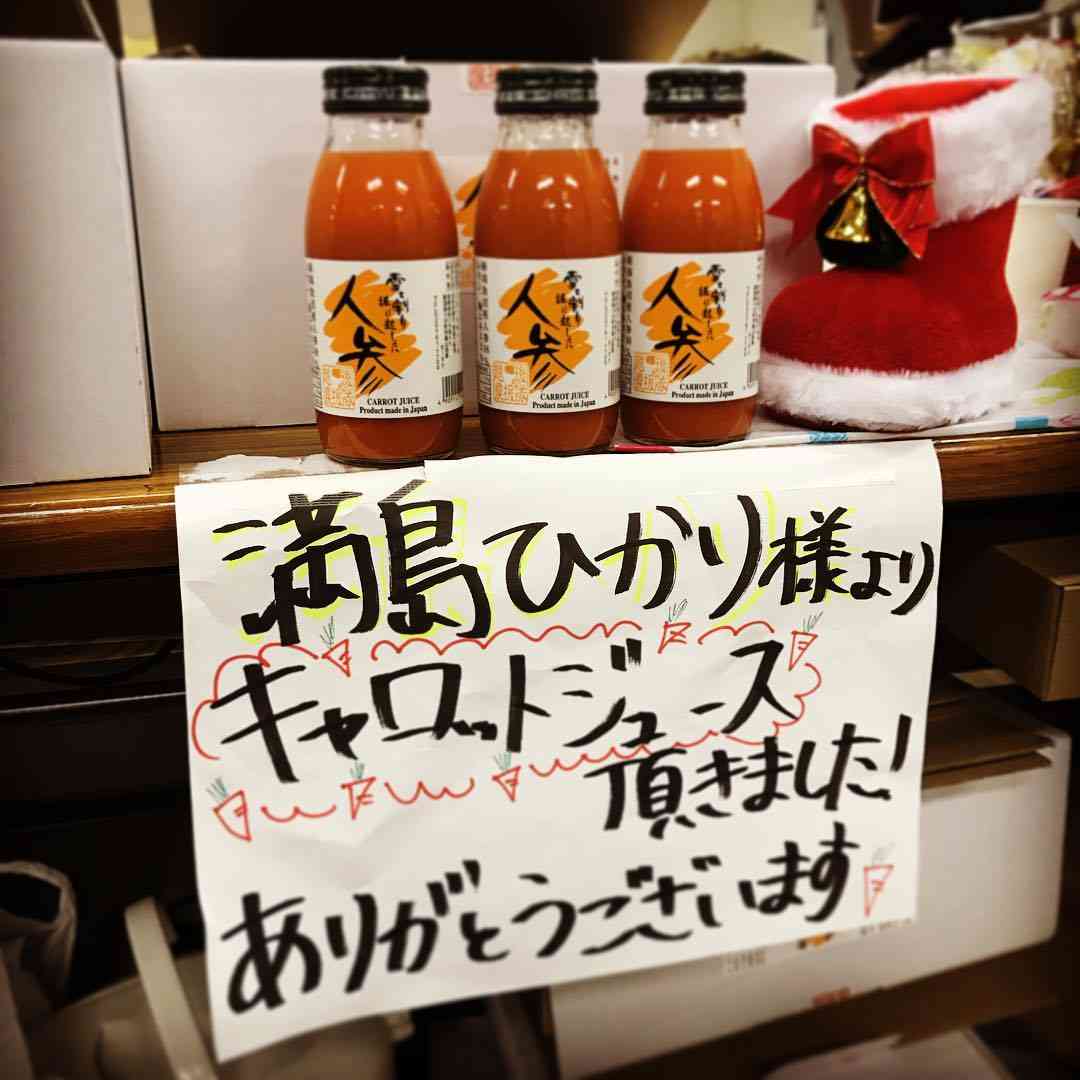 雪を割り
掘り起した
人参
CARROT JUICE
Product made in Japan
雪を割り
掘り起した
人参
CARROT JUICE
Product made in Japan
雪を割り
掘り起した
人参
CARROT JUICE
Product made in Japan
満島ひかり様より
キャロットジュース
頂きました!
ありがとうございます